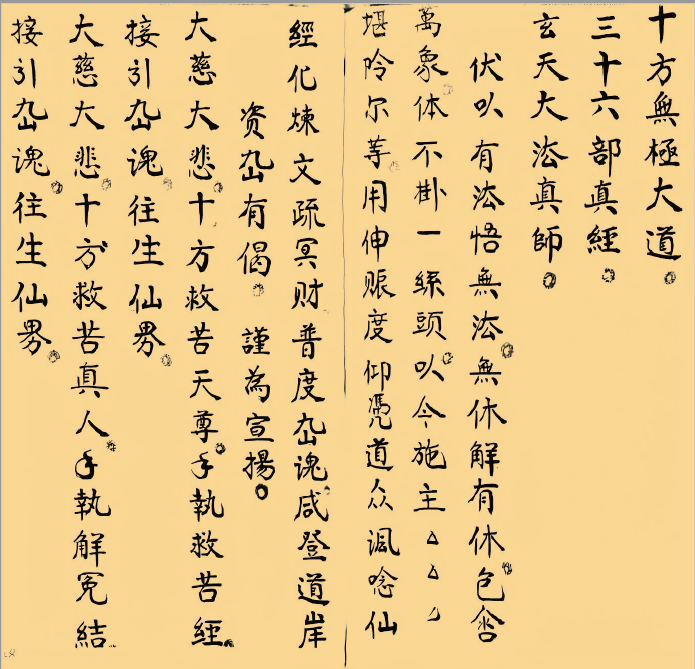 十方無極大道
三十六部真經
玄天大法真師
伏以有法悟無法無休解有休包含
萬象体不掛一絲頭以今施主△△△
堪怜尔等用伸賑度仰凴道众諷唸仙
經化煉文疏冥财普度孤魂咸登道岸
资孤有偈 謹為宣揚
大慈大悲十方救苦天尊手執救苦經
接引孤魂往生仙界
大慈大悲十方救苦真人手執解冤結
接引孤魂往生仙界